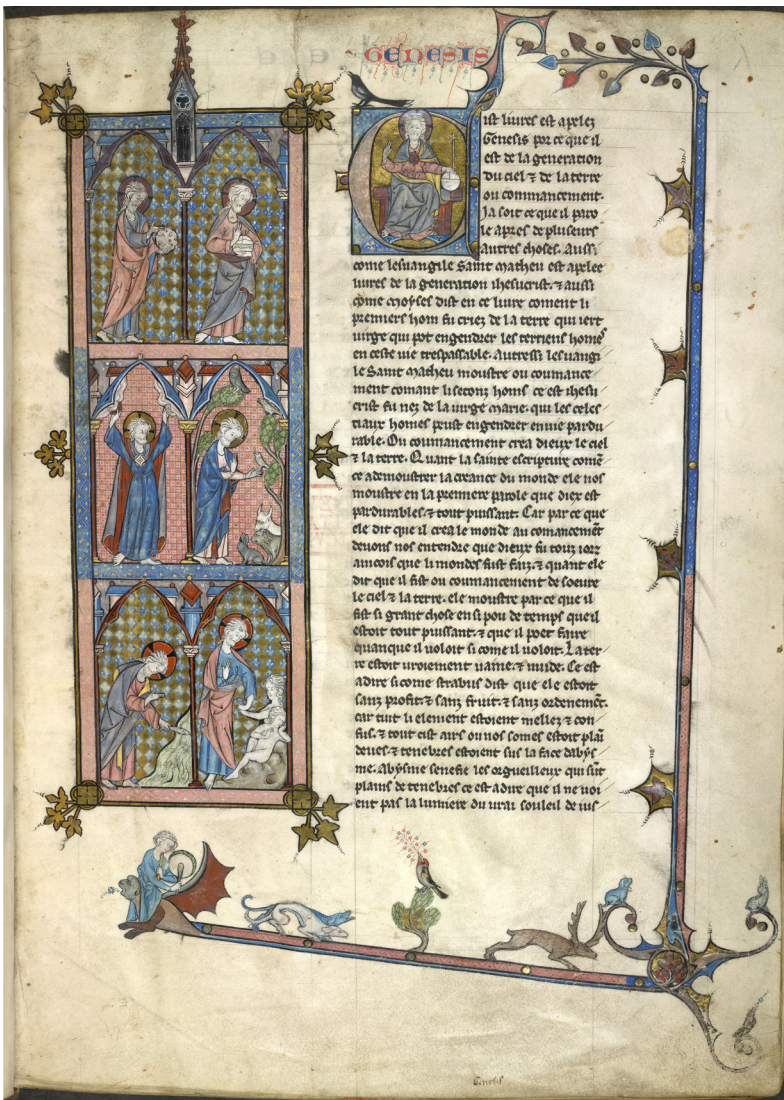 GENESIS
Cist liures est apelez
Genesis por ce que il
est de la generation
du ciel ⁊ de la terre
ou commancement.
Ja soit ce que il paro
le apres de pluseurs
autres choses. Aussi
come leuuangile Saint Matheu est apelee
liures de la generation ihesucrist. ⁊ aussi
come moyses dist en ce liure coment li
premiers hom fu criez de la terre qui iert
uirge qui pot engendrer les terriens homes
en ceste uie trespassable. Autressi leuuangi
le Saint Matheu moustre ou coumance
ment comant li seconz homs ce est ihesu
crist fu nez de la uirge marie. qui les celes
tiaux homes peust engendrer en uie pardu
rable. Ou coumancement crea dieux le ciel
⁊ la terre. Quant la sainte escripture comē
ce a demoustrer la creance du monde ele nos
moustre en la premiere parole que diex est
pardurables. ⁊ tout puissant. Car par ce que
ele dit que il crea le monde au comancemēt
deuons nos entendre que dieux fu touz iorz
aincois que li mondes fust faiz. ⁊ quant ele
dit que il fist ou coumancement de
le ciel ⁊ la terre. ele moustre par ce que il
fist si grant chose en si pou de temps que il
estoit tout puissant. ⁊ que il poet faire
quanque il uoloit si come il uoloit. La ter
re estoit uroiement uaine. ⁊ uuide. Ce est
a dire si come strabus dist que ele estoit
sanz profit. ⁊ sanz fruit. ⁊ sanz ordenemēt.
car tuit li element estoient mellez ⁊ con
fus. ⁊ tout cist airs ou nos somes estoit plai
⁊ tenebres estoient sus la face dabys
me. Abysme senefie les orgueilleux qui sūt
plains de tenebres ce est a dire que il ne uoi
ent pas la lumiere du urai souleil de ius
Genesis